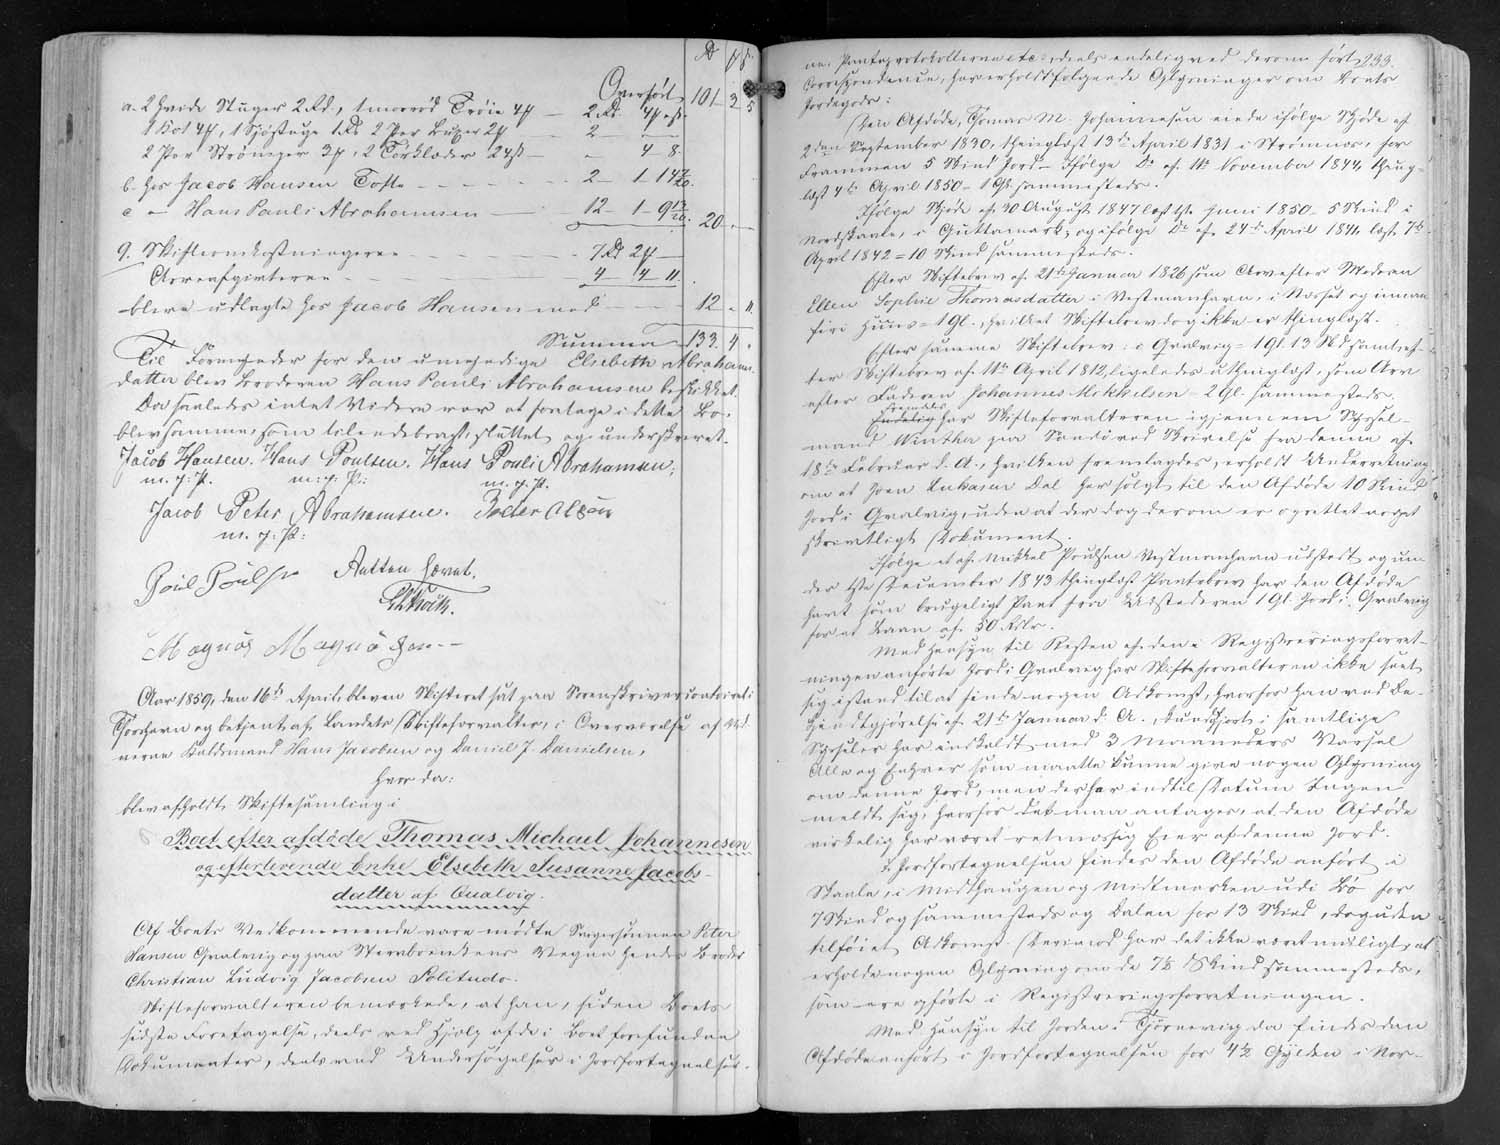 Rd. ſk. s.
Overført 101 3 5
a. 2 hvide Stuger 2 Rd., 1 morrød Trøie 4 ſk — 2 Rd. 4 ſk
1 Kot 4 ſk, 1 Sjøstuge 1 Rd 2 Par Buxer 2 ſk — 2 — —
2 Par Strømper 3 ſk, 2 Tørklæder 24 ß — „ 4 - 8.
b. hos Jacob Hansen Tofte — 2 - 1 - 14
c — Hans Pauli Abrahamsen — 12 - 1 - 9 20 „ —
9. Skifteomkostningerne — 7 Rd 2 ſk
Arveafgifterne — 4 4 11
bleve udlagte hos Jacob Hansen med — 12 „ 11
Summa 133. 4 „
Til Formynder for den umyndige Elsebeth Abrahams-
datter blev Broderen Hans Pauli Abrahamsen beskikket.
Da saaledes intet Videre var at foretage i dette Bo,
blev samme, som tilendebragt, sluttet og underskrevet.
Jacob Hansen. Hans Poulsen. Hans Pauli Abrahamsen,
m. f. P. m. f. P. m. f. P.
Jacob Peter Abrahamsen.
m. f. P.
Poul Poulsen Retten hævet.
Magnus Magnussen
Aar 1859, den 16de April, blev Skifteret sat paa Sorenskrivercontoiret i
Thorshavn og betjent af Landets Skifteforvalter, i Overværelse af Vid-
nerne Kuldsmand Hans Jacobsen og Daniel J. Danielsen,
Hvor da:
blev afholdt Skiftesamling i
Boet efter afdøde Thomas Michael Johannesen
og efterlevende Enke Elsebeth Susanne Jacobs-
datter af Qualvig.
Af Boets Vedkommende vare mødte Svigersønnen Peter
Hansen Qvalvig og paa Stervboenkens Vegne hendes Broder
Christian Ludvig Jacobsen Solitudo.
Skifteforvalteren bemærkede, at han, siden Boets
sidste Foretagelse, deels ved Hjælp af de i Boet forefundne
Dokumenter, deels ved Undersøgelser i Jordfortegnelser-
233.
ne, Panteprotokollerne etc, deels endelig ved derom ført
Correspondence, har erholdt følgende Oplysninger om Boets
Jordegods:
Den Afdøde, Thomas M. Johannesen eiede ifølge Skjøde af
2den September 1830, thinglæst 13de April 1831 i Strømnes, for
Frammen 5 Skind Jord — Ifølge Do af 11te November 1844, thing-
læst 4de April 1850 — 1 Gl. sammesteds.
Ifølge Skjøde af 30 August 1847 læst 1ste Juni 1850 — 5 Skind i
Nordskaale, i Guttamark, og ifølge Do af 24de April 1841 læst 7de
April 1842 = 10 Skind sammesteds.
Efter Skiftebrev af 21de Januar 1826 som Arv efter Moderen
Ellen Sophie Thomasdatter i Vestmanhavn, i Nesset og innan
firi Huus = 1 Gl., hvilket Skiftebrev dog ikke er thinglæst.
Efter samme Skiftebrev: i Qvalvig = 1 Gl. 13 Skd samt, ef-
ter Skiftebrev af 11te April 1812, ligeledes uthinglæst, som Arv
efter Faderen Johannes Mikkelsen = 2 Gl. sammesteds.
Endelig har Skifteforvalteren igjennem Syssel-
mand Winther paa Sandø ved Skrivelse fra denne af
18de Februar d. A., hvilken fremlagdes, erholdt Underretning
om at Joen Dal har solgt til den Afdøde 10 Skind
Jord i Qvalvig, uden at der dog derom er oprettet noget
skriftligt Dokument.
Ifølge et af Mikkel Poulsen Vestmanhavn udstedt og un-
der 1ste December 1843 thinglæst Pantebrev har den Afdøde
havt som brugeligt Pant fra Udstederen 1 Gl. Jord i Qvalvig
for et Laan af 50 Rdlr.
Med Hensyn til Resten af den i Registreringsforret-
ningen anførte Jord i Qvalvig har Skifteforvalteren ikke seet
sig istand til at finde nogen Adkomst, hvorfor han ved Be-
kjendtgjørelse af 21de Januar d. A., kundgjort i samtlige
Sysseler har indkaldt med 3 Maaneders Varsel
Alle og Enhver som maatte kunne give nogen Oplysning
om denne Jord, men der har indtil Datum Ingen
meldt sig, hvorfor det maa antages, at den Afdøde
virkelig har været retmæssig Eier af denne Jord.
I Jordfortegnelsen findes den Afdøde anført i
Skaale, i Midthaugen og Midtmarken udi Bø for
7 Skind og sammesteds og Dalen for 13 Skind, dog uden
tilføiet Adkomst. Derimod har det ikke været muligt, at
erholde nogen Oplysning om de 7½ Skind sammesteds,
som ere opførte i Registreringsforretningen.
Med Hensyn til Jorden i Tjørnevig da findes den
Afdøde anført i Jordfortegnelsen for 4½ Gylden i Nor-